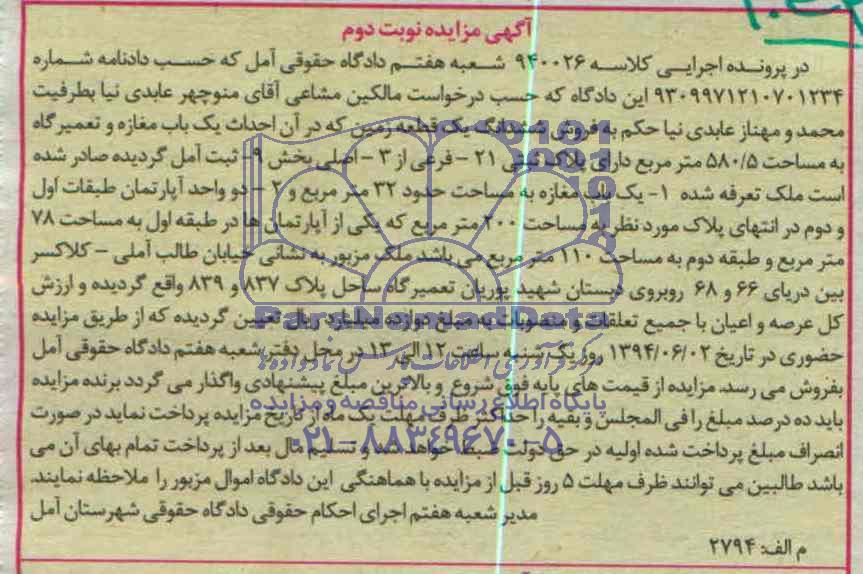 آگهی مزایده نوبت دوم
در پرونده اجرایی کلاسه ۹۴۰۰۲۶ شعبه هفتم دادگاه حقوقی آمل که حسب دادنامه شماره
۹۳۰۹۹۷۱۲۱۰۷۰۱۲۳۴ این دادگاه که حسب درخواست مالکین مشاعی آقای منوچهر عابدی نیا بطرفیت
محمد و مهناز عابدی نیا حکم به فروش ششدانگ یک قطعه زمین که در آن احداث یک باب مغازه و تعمیرگاه
به مساحت ۵۸۰/۵ متر مربع دارای پلاک ثبتی ۲۱ - فرعی از ۳ - اصلی بخش ۹- ثبت آمل گردیده صادر شده
است ملک تعرفه شده ۱- یک باب مغازه به مساحت حدود ۳۲ متر مربع و ۲ - دو واحد آپارتمان طبقات اول
و دوم در انتهای پلاک مورد نظر به مساحت ۲۰۰ متر مربع که یکی از آپارتمان ها در طبقه اول به مساحت ۷۸
متر مربع و طبقه دوم به مساحت ۱۱۰ متر مربع می باشد ملک مزبور به نشانی خیابان طالب آملی - کلاکسر
بین دریای ۶۶ و ۶۸ روبروی دبستان شهید پوریان تعمیرگاه ساحل پلاک ۸۳۷ و ۸۳۹ واقع گردیده و ارزش
کل عرصه و اعیان با جمیع تعلقات و منصوبات به مبلغ دوازده میلیارد ریال تعیین گردیده که از طریق مزایده
حضوری در تاریخ ۱۳۹۴/۰۶/۰۲ روز یک شنبه ساعت ۱۲ الی ۱۳ در محل دفتر شعبه هفتم دادگاه حقوقی آمل
بفروش می رسد. مزایده از قیمت های پایه فوق شروع و بالاترین مبلغ پیشنهادی واگذار می گردد برنده مزایده
باید ده درصد مبلغ را فی المجلس و بقیه را حداکثر ظرف مهلت یک ماه از تاریخ مزایده پرداخت نماید در صورت
انصراف مبلغ پرداخت شده اولیه در حق دولت ضبط خواهد شد و تسلیم مال بعد از پرداخت تمام بهای آن می
باشد طالبین می توانند ظرف مهلت ۵ روز قبل از مزایده با هماهنگی این دادگاه اموال مزبور را ملاحظه نمایند.
مدیر شعبه هفتم اجرای احکام حقوقی دادگاه حقوقی شهرستان آمل
م الف: ۲۷۹۴
ParsNamadData
پایگاه اطلاع رسانی مناقصه و مزایده
۰۲۱-۸۸۳۴۹۶۷۰-۵